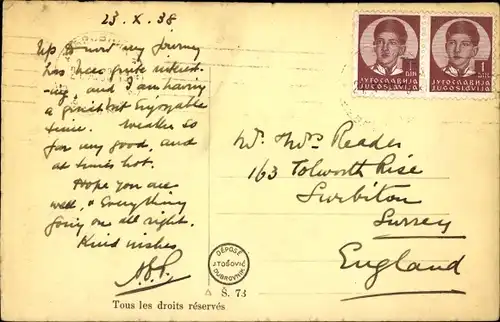 23.X.38
Up to now my journey
has been quite interest-
-ing, and I am having
a quiet but Enjoyable
time. Weather so
far very good, and
at times hot.
Hope you are
well, & Everything
going on all right.
Kind wishes
Mr. Mrs Reader
163 Tolworth Rise
Surbiton
Surrey
England
1
ДИН
ЈУГОСЛАВИЈА
JUGOSLAVIJA
1
ДИН
ЈУГОСЛАВИЈА
JUGOSLAVIJA
DÉPOSÉ
STOŠOVIĆ
DUBROVNIK
Š. 73
Tous les droits réservés